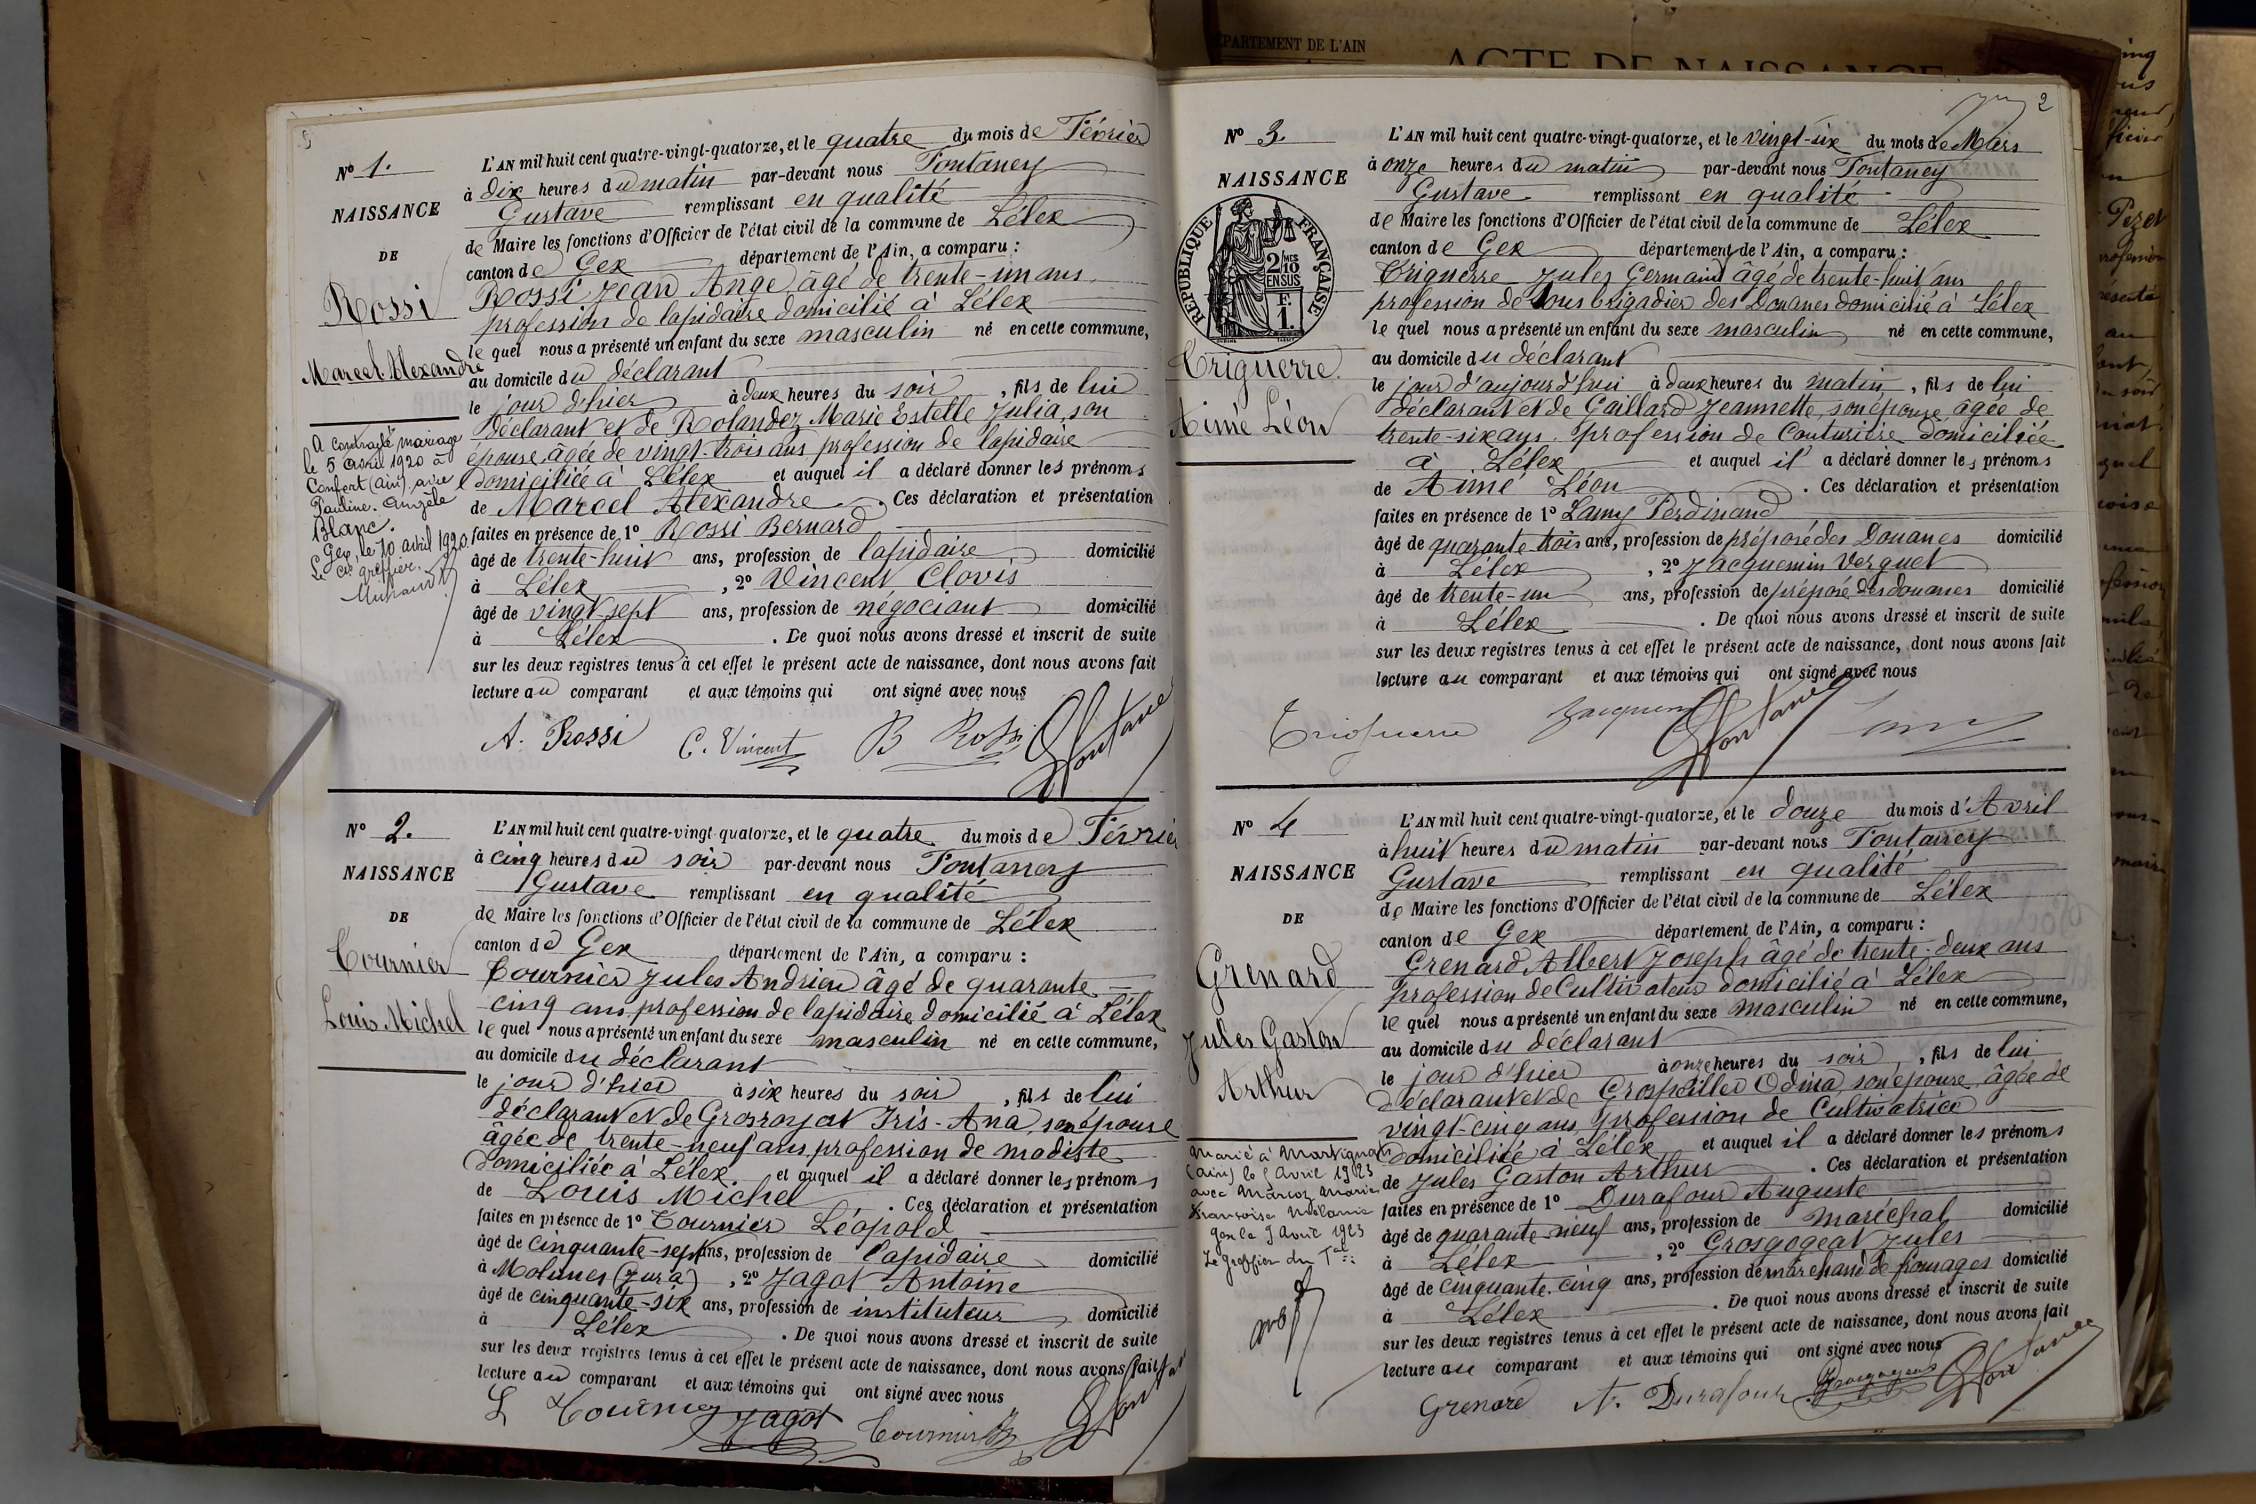 N° 1.
NAISSANCE
DE
Rossi
Marcel Alexandre
A contracté mariage
le 5 avril 1920 à
Confort (ain) avec
Pauline-Angèle
Blanc.
Gex, le 10 avril 1920.
Le greffier.
L'AN mil huit cent quatre-vingt-quatorze, et le quatre du mois de Février
à dix heures du matin par-devant nous Fontaney
Gustave remplissant en qualité
de Maire les fonctions d'Officier de l'état civil de la commune de Lélex
canton de Gex département de l'Ain, a comparu :
Rossi Jean Ange âgé de trente-un ans
profession de lapidaire domicilié à Lélex
le quel nous a présenté un enfant du sexe masculin né en cette commune,
au domicile du déclarant
le jour d'hier à deux heures du soir, fils de lui
déclarant et de Rolandez Marie Estelle Julia, son
épouse, âgée de vingt-trois ans profession de lapidaire
domiciliée à Lélex et auquel il a déclaré donner les prénoms
de Marcel Alexandre. Ces déclaration et présentation
faites en présence de 1° Rossi Bernard
âgé de trente-huit ans, profession de lapidaire domicilié
à Lélex, 2° Vincent Clovis
âgé de vingt-sept ans, profession de négociant domicilié
à Lélex. De quoi nous avons dressé et inscrit de suite
sur les deux registres tenus à cet effet le présent acte de naissance, dont nous avons fait
lecture au comparant et aux témoins qui ont signé avec nous
A. Rossi C. Vincent B Rossi GFontaney
N° 2.
NAISSANCE
DE
Tournier
Louis Michel
L'AN mil huit cent quatre-vingt-quatorze, et le quatre du mois de Février
à cinq heures du soir par-devant nous Fontaney
Gustave remplissant en qualité
de Maire les fonctions d'Officier de l'état civil de la commune de Lélex
canton de Gex département de l'Ain, a comparu :
Tournier Jules Andrieu âgé de quarante-
cinq ans, profession de lapidaire domicilié à Lélex
le quel nous a présenté un enfant du sexe masculin né en cette commune,
au domicile du déclarant
le jour d'hier à six heures du soir, fils de lui
déclarant et de Grosrojat Iris-Ana, son épouse
âgée de trente-neuf ans, profession de modiste
domiciliée à Lélex et auquel il a déclaré donner les prénoms
de Louis Michel. Ces déclaration et présentation
faites en présence de 1° Tournier Léopold
âgé de cinquante-sept ans, profession de lapidaire domicilié
à Molunes (Jura), 2° Jagot Antoine
âgé de cinquante-six ans, profession de instituteur domicilié
à Lélex. De quoi nous avons dressé et inscrit de suite
sur les deux registres tenus à cet effet le présent acte de naissance, dont nous avons fait
lecture au comparant et aux témoins qui ont signé avec nous
L Tournier Jagot Tournier GFont
DÉPARTEMENT DE L'AIN
ACTE DE NAISSANCE
2
N° 3.
NAISSANCE
RÉPUBLIQUE FRANÇAISE
2/10 EN SUS
F. 1.
Triguerre
Aimé Léon
L'AN mil huit cent quatre-vingt-quatorze, et le vingt-six du mois de Mars
à onze heures du matin par-devant nous Fontaney
Gustave remplissant en qualité
de Maire les fonctions d'Officier de l'état civil de la commune de Lélex
canton de Gex département de l'Ain, a comparu :
Triguerre Jules Germain âgé de trente-huit ans
profession de sous brigadier des Douanes domicilié à Lélex
le quel nous a présenté un enfant du sexe masculin né en cette commune,
au domicile du déclarant
le jour d'aujourd'hui à deux heures du matin, fils de lui
déclarant et de Gaillard Jeannette, son épouse âgée de
trente-six ans, profession de Couturière domiciliée
à Lélex et auquel il a déclaré donner les prénoms
de Aimé Léon. Ces déclaration et présentation
faites en présence de 1° Lamy Ferdinand
âgé de quarante trois ans, profession de préposé des Douanes domicilié
à Lélex, 2° Jacquemin Verguet
âgé de trente-un ans, profession de préposé des douanes domicilié
à Lélex. De quoi nous avons dressé et inscrit de suite
sur les deux registres tenus à cet effet le présent acte de naissance, dont nous avons fait
lecture au comparant et aux témoins qui ont signé avec nous
Triguerre Jacquemin GFontaney Lamy
N° 4
NAISSANCE
DE
Grenard
Jules Gaston
Arthur
Marié à Martignat
(ain) le 5 Avril 1923
avec Marcoz Marie
Françoise Mélanie
Gex le 9 Avril 1923
Le Greffier du Tal:
L'AN mil huit cent quatre-vingt-quatorze, et le douze du mois d'Avril
à huit heures du matin par-devant nous Fontaney
Gustave remplissant en qualité
de Maire les fonctions d'Officier de l'état civil de la commune de Lélex
canton de Gex département de l'Ain, a comparu :
Grenard Albert Joseph âgé de trente-deux ans
profession de Cultivateur domicilié à Lélex
le quel nous a présenté un enfant du sexe masculin né en cette commune,
au domicile du déclarant
le jour d'hier à onze heures du soir, fils de lui
déclarant et de Grospellier Odina, son épouse, âgée de
vingt-cinq ans, profession de Cultivatrice
domiciliée à Lélex et auquel il a déclaré donner les prénoms
de Jules Gaston Arthur. Ces déclaration et présentation
faites en présence de 1° Durafour Auguste
âgé de quarante-neuf ans, profession de maréchal domicilié
à Lélex, 2° Grosgogeat Jules
âgé de cinquante-cinq ans, profession de marchand de fromages domicilié
à Lélex. De quoi nous avons dressé et inscrit de suite
sur les deux registres tenus à cet effet le présent acte de naissance, dont nous avons fait
lecture au comparant et aux témoins qui ont signé avec nous
Grenard A. Durafour Grosgogeat GFontaney